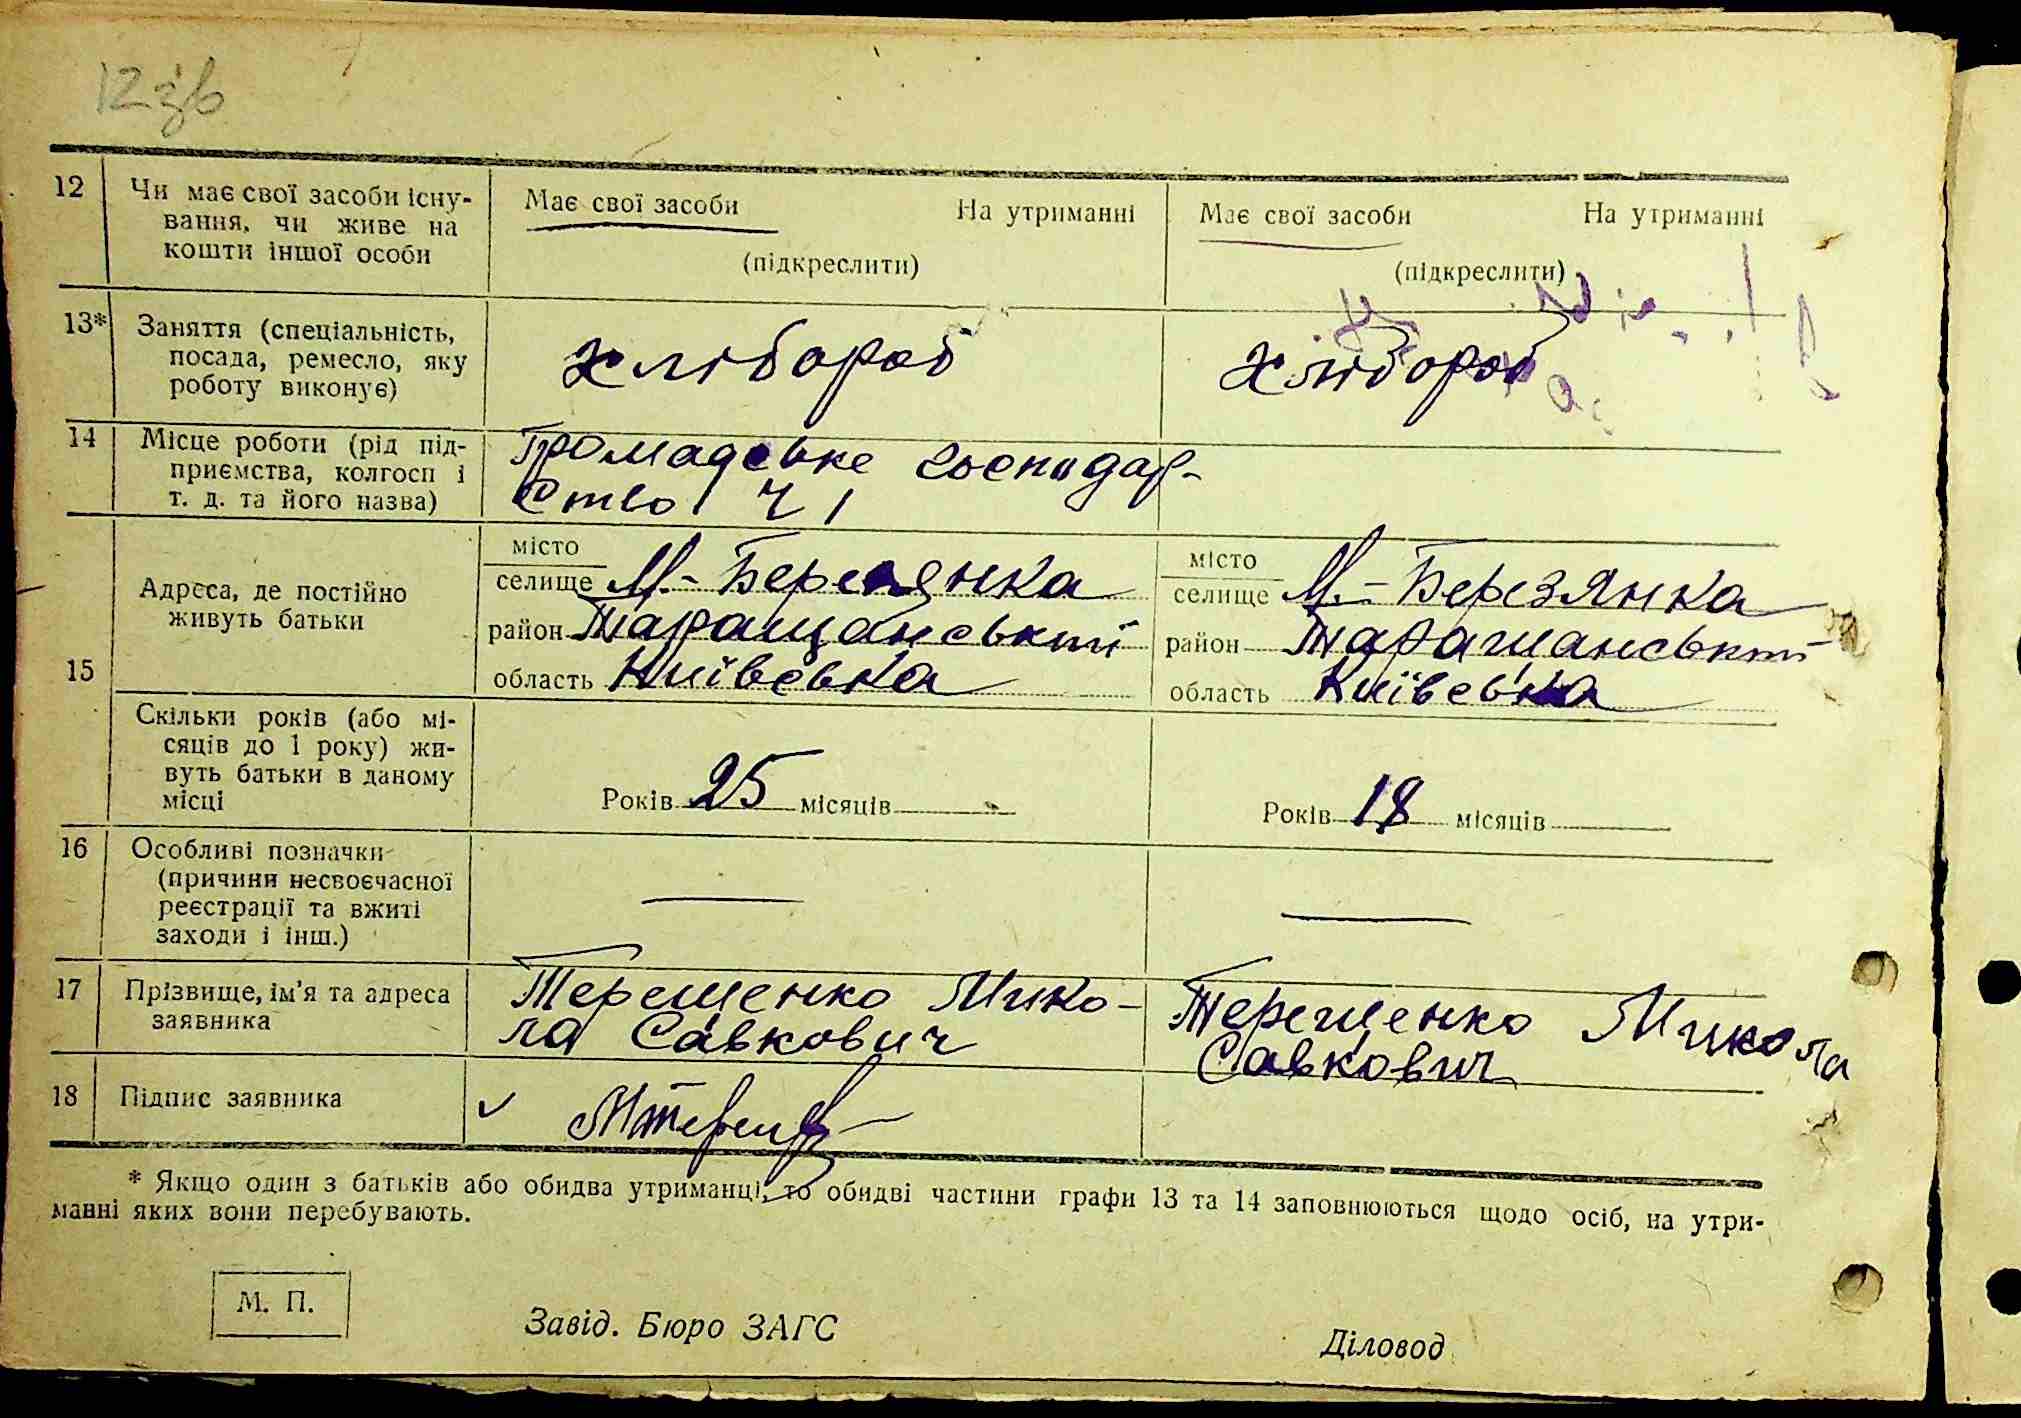 12зв
12 Чи має свої засоби існу- Має свої засоби На утриманні Має свої засоби На утриманні
вання, чи живе на
кошти іншої особи (підкреслити) (підкреслити)
13* Заняття (спеціальність,
посада, ремесло, яку хлібороб хлібороб
роботу виконує)
14 Місце роботи (рід під- Громадське господар-
приємства, колгосп і
т. д. та його назва) ство ч 1
місто місто
Адреса, де постійно селище М.-Березянка селище М.-Березянка
живуть батьки район Таращанський район Таращанський
15 область Київська область Київська
Скільки років (або мі-
сяців до 1 року) жи-
вуть батьки в даному
місці Років 25 місяців Років 18 місяців
16 Особливі позначки
(причини несвоєчасної
реєстрації та вжиті
заходи і інш.)
17 Прізвище, ім'я та адреса Терещенко Мико- Терещенко Микола
заявника ла Савкович Савкович
18 Підпис заявника
* Якщо один з батьків або обидва утриманці, то обидві частини графи 13 та 14 заповнюються щодо осіб, на утри-
манні яких вони перебувають.
М. П.
Завід. Бюро ЗАГС Діловод